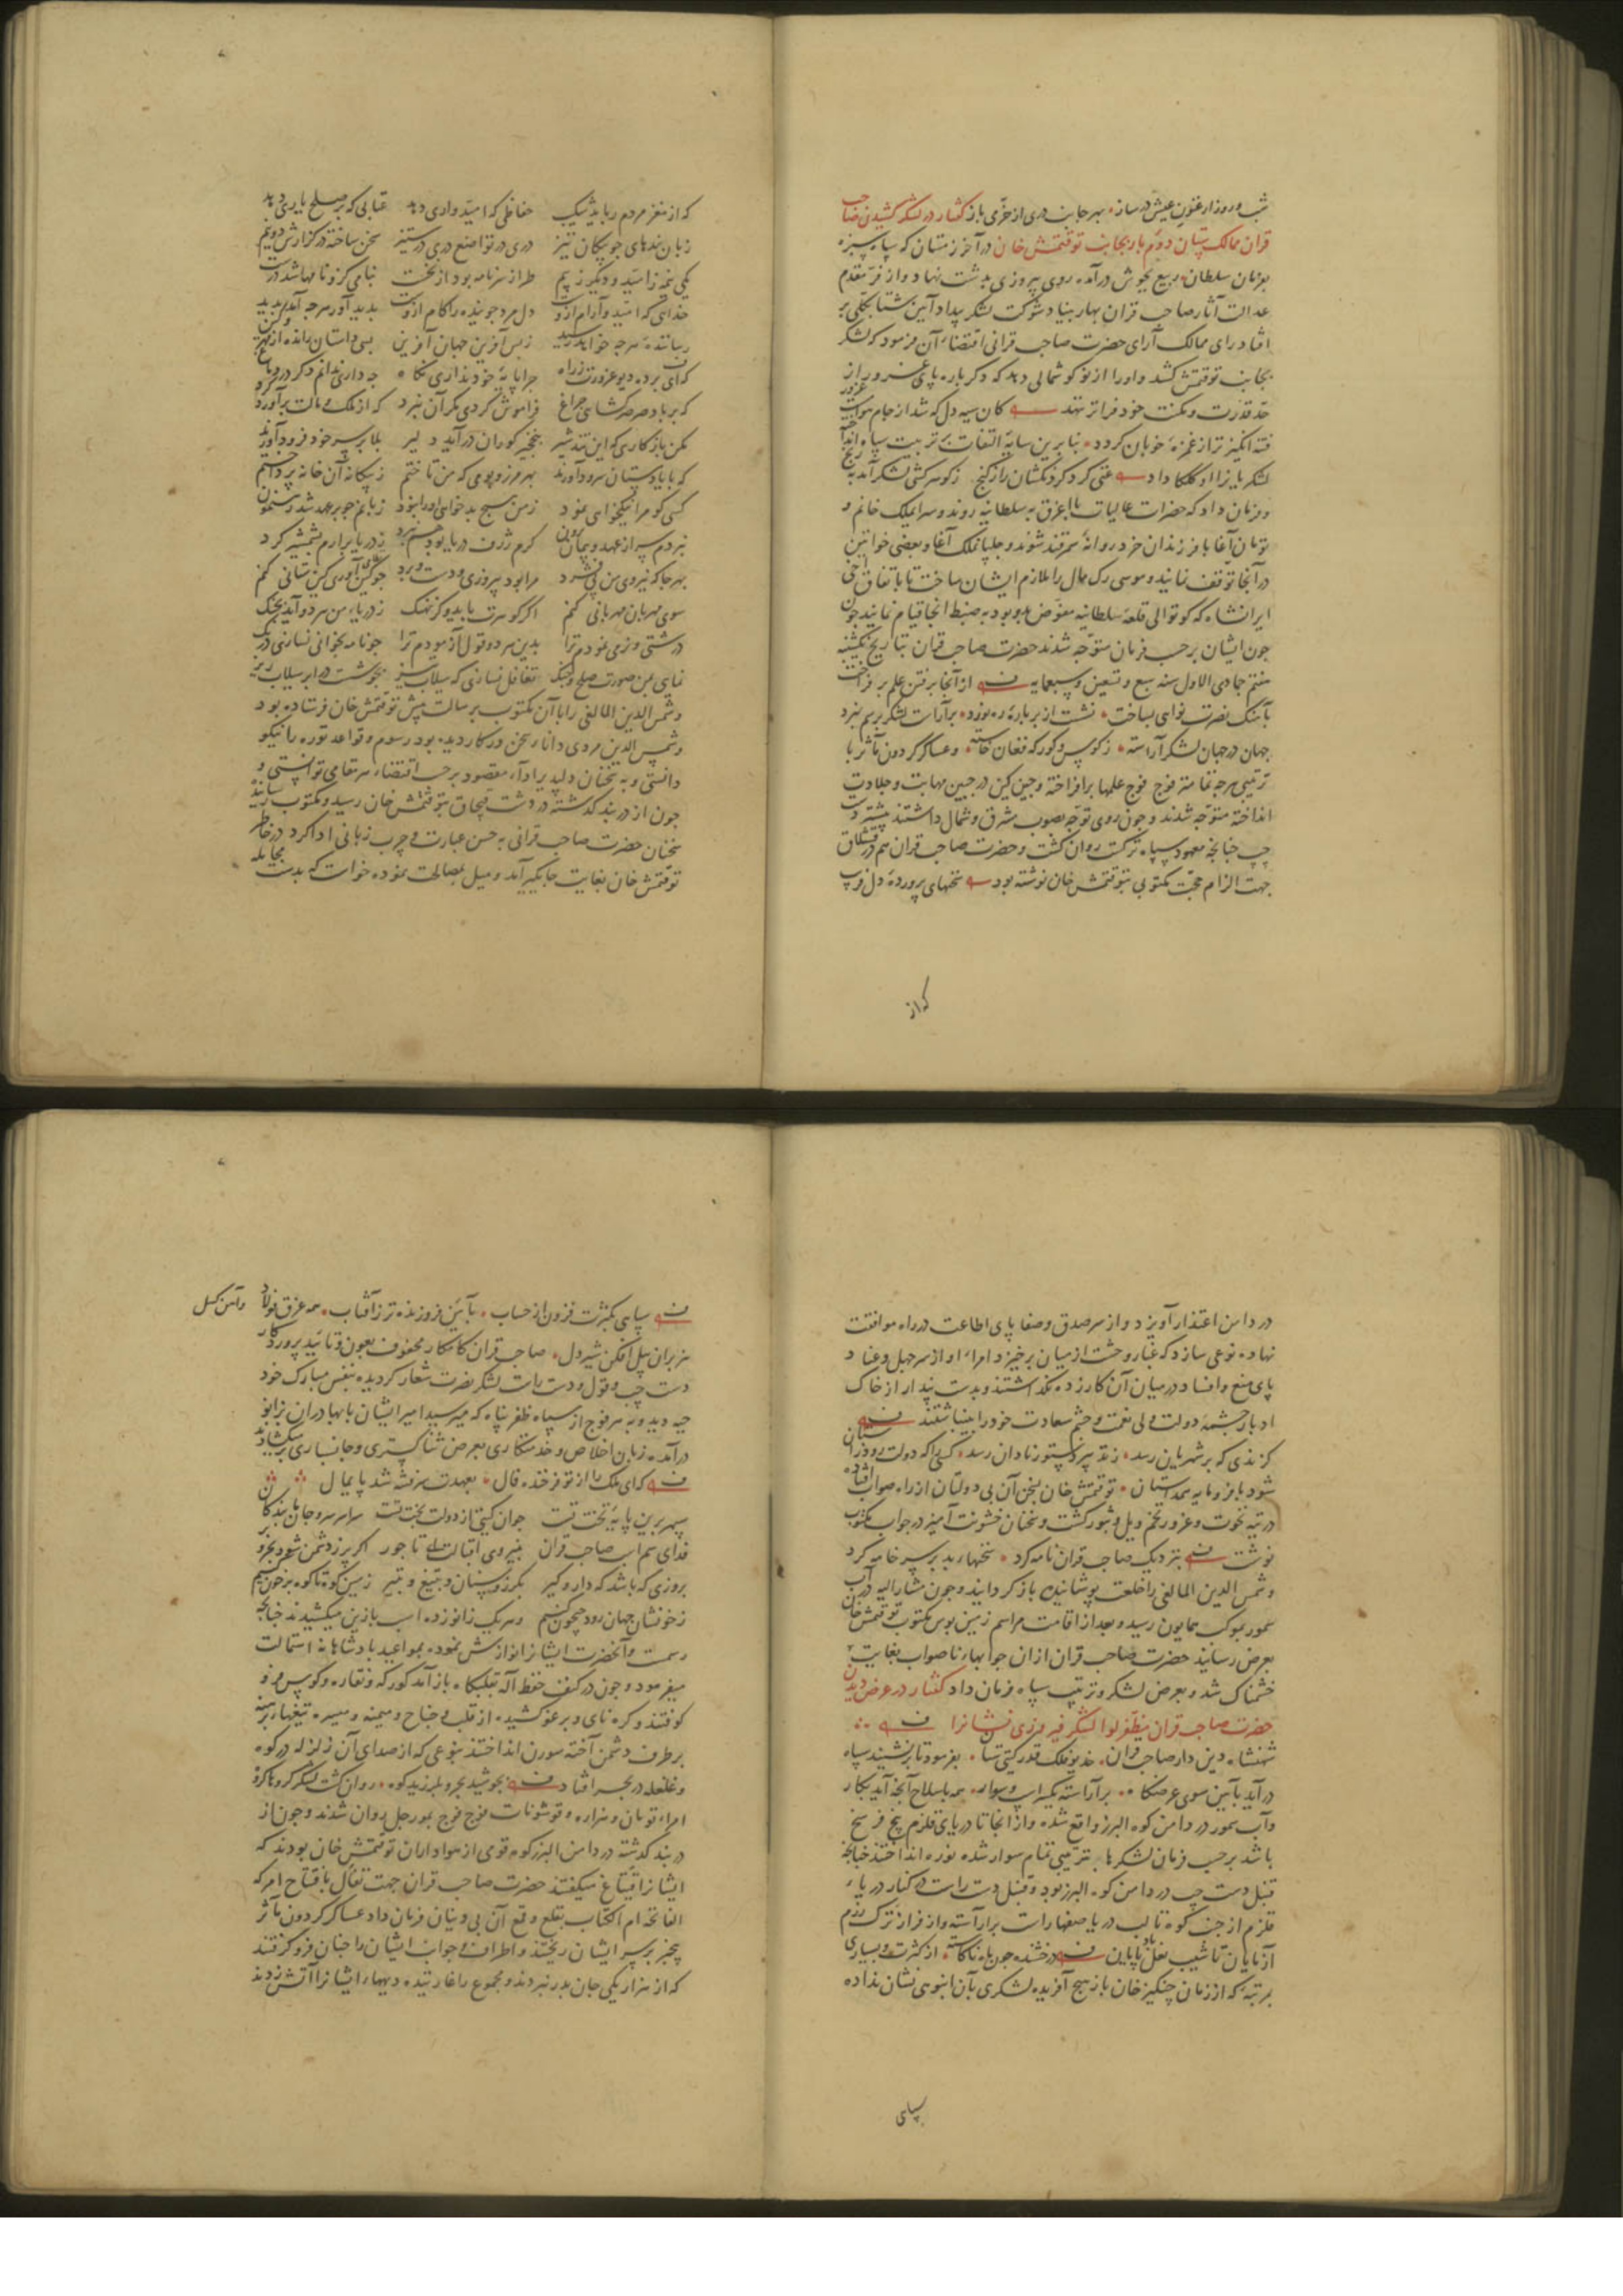 شب و روز ارغنون عیش در ساز بهر جانب دری از خرمی باز گفتار در لشکر کشیدن صاحب
قران ممالک ستان دوم بار بجانب توقتمش خان در آخر زمستان که سپاه سبزه
بفرمان سلطان ربیع بجوش در آمده روی پیروزی بدشت نهاد و از فر مقدم
عدالت آثار صاحب قران بهار بنیاد شوکت لشکر بیداد آیین شتا بکلی بر
افتاد رای ممالک آرای حضرت صاحب قرانی اقتضاء آن فرمود که لشکر
بجانب توقتمش کشد و او را از نو گوشمالی دهد که دگر باره پای غرور از
حد قدرت و مکنت خود فراتر ننهد کان سیه دل که شد از جام هوا مست غرور
فتنه انگیز تر از غمزه خوبان گردد بنابرین سایه التفات بر تربیت سپاه انداخته
لشکریانرا اوکلکا داد غنی کرد گردنکشان را ز گنج ز گوهر کشی لشکر آمد برنج
و فرمان داد که حضرات عالیات با اغرق به سلطانیه روند و سرایملک خانم و
تومان آغا با فرزندان خرد روانه سمرقند شوند و جلپان ملک آغا و بعضی خواتین
در آنجا توقف نمایند و موسی رک مال را ملازم ایشان ساخت تا باتفاق اخی
ایرانشاه که کوتوالی قلعه سلطانیه مفوض بدو بود به ضبط آنجا قیام نمایند چون
چون ایشان بر حسب فرمان متوجه شدند حضرت صاحب قران بتاریخ یکشنبه
هفتم جمادی الاول سنه سبع و تسعین و سبعمایه از آنجا برفتن علم بر فراخت
بآهنگ نصرت نوای بساخت نشست از بر باره ره نورد بر آراست لشکر برسم نبرد
جهان در جهان لشکر آراسته ز کوس و کورکه فغان خاسته و عساکر گردون مآثر با
ترتیبی هر چه تمامتر فوج فوج علمها برافراخته و چین کین در جبین مهابت و جلادت
انداخته متوجه شدند و چون روی توجه بصوب مشرق و شمال داشتند بیشتر دست
چپ چنانچه معهود سپاه ترکست روان گشت و حضرت صاحب قران هم در قشلاق
جهت الزام حجت مکتوبی بتوقتمش خان نوشته بود سخنهای پرورده دل فریب
که از
که از مغز مردم رباید شکیب خفاظی که امیدواری دهد عتابی که بر صلح یاری دهد
زبان بندهای چو پیکان تیز دری در تواضع دری در ستیز سخن ساخته در گزارش دو نیم
یکی نیمه ز امید و دیگر ز بیم طراز سر نامه بود از نخست بنامی کزو نامها شد درست
خدایی که امید و آرام ازوست دل مرد جوینده را کام ازوست پدید آور هر چه آمد پدید
رساننده هر چه خواهد رسید زبس آفرین جهان آفرین بسی داستان رانده از مهر و کین
که ای برده دیو غرورت ز راه چرا پایه خود نداری نگاه چه داری ندانم دگر در دماغ
که بر باد صرصر گشای چراغ فراموش کردی مگر آن نبرد که از ملک و مالت برآورد گرد
مکن باز کاری که این تند شیر بنخجیر گوران در آید دلیر بلا بر سر خود فرود آورند
که با باد دستان سرود آورند بهر مرز و بومی که من تاختم ز بیگانه آن خانه پرداختم
کسی کو مرا نیکخواهی نمود زمن هیچ بدخواهی او را نبود زبانم چو بر عهد شد رهنمون
نبردم سر از عهد و پیمان برون کرم ژرف دریا بود هم نبرد ز دریا برآرم بشمشیر گرد
بهر جا که نیروی من پی فشرد مرا بود پیروزی و دست برد چو کین آوری کین ستانی کنم
سوی مهربان مهربانی کنم اگر گوهرت باید و گر نهنگ ز دریاء من هر دو آید بچنگ
درشتی و نرمی نمودم ترا بدین هر دو قول آزمودم ترا چو نامه بخوانی نسازی درنگ
نمای بمن صورت صلح و جنگ تغافل نسازی که سیلاب تیز بجوشست در ابر سیلاب ریز
و شمس الدین المالغی را با آن مکتوب برسالت پیش توقتمش خان فرستاده بود
و شمس الدین مردی دانا و سخن ور کار دیده بود رسوم و قواعد توره را نیکو
دانستی و به سخنان دلپذیر اداء مقصود بر حسب اقتضاء هر مقامی توانستی و
چون از دربند گذشته در دشت قبچاق بتوقتمش خان رسید و مکتوب رسانید و
سخنان حضرت صاحب قرانی به حسن عبارت و چرب زبانی ادا کرد در خاطر
توقتمش خان بغایت جایگیر آمد و میل بمصالحت نموده خواست که بدست مجامله
در دامن اعتذار آویزد و از سر صدق و صفا پای اطاعت در راه موافقت
نهاده نوعی سازد که غبار وحشت از میان برخیزد امراء او از سر جهل و عناد
پای منع و افساد در میان آن کار زده نگذاشتند و بدست پندار از خاک
ادبار چشمه دولت ولی نعمت و چشم سعادت خود را بینباشتند
گزندی که بر شهریان رسد ز تدبیر دستور نادان رسد کسی را که دولت رود زآستان
شود با فرومایه همداستان توقتمش خان بسخن آن بی دولتان از راه صواب افتاده
در تیه نخوت و غرور بخم ویل و ثبور گشت و سخنان خشونت آمیز در جواب مکتوب
نوشت بنزدیک صاحب قران نامه کرد سخنهاء بد بر سر خامه کرد
و شمس الدین المالغی را خلعت پوشانیده باز گردانید و چون مشار الیه در آب
سمور بموکب همایون رسید و بعد از اقامت مراسم زمین بوس مکتوب توقتمش خان
بعرض رسانید حضرت صاحب قران از آن جوابهاء ناصواب بغایت
خشمناک شد و بعرض لشکر و ترتیب سپاه فرمان داد گفتار در عرض دیدن
حضرت صاحب قران مظفر لوا لشکر فیروزی نشانرا
شهنشاه دین دار صاحب قران خدیو فلک قدر گیتی ستان بفرمود تا بر نشیند سپاه
در آید بآیین سوی عرضگاه بر آراسته یکسر اسپ و سوار همه با سلاح آنچه آید بکار
و آب سمور در دامن کوه البرز واقع شده و از آنجا تا دریای قلزم پنج فرسخ
باشد بر حسب فرمان لشکرها بترتیبی تمام سوار شده توره انداختند چنانچه
قنبل دست چپ در دامن کوه البرز بود و قنبل دست راست در کنار دریاء
قلزم از جنب کوه تا لب دریا صفها راست برآراسته و از فراز ترک رزم
آزمایان تا شیب نعل بادپایان درخشنده چون ماه ناکاسته از کثرت و بسیاری
بمرتبه که از زمان چنگیز خان باز هیچ آفریده لشکری بآن انبوهی نشان نداده
سپاهی
سپاهی بکثرت فزون از حساب بآیین فروزنده تر ز آفتاب همه غرق فولاد و آهن گسل
هزبران پیل افکن شیر دل صاحب قران کامکار محفوف بعون و تایید پروردگار
دست چپ و قول و دست راست لشکر نصرت شعار گردیده بنفس مبارک خود
جیبه دید و به هر فوج از سپاه ظفر پناه که میرسید امیر ایشان با بهادران بزانو
در آمده زبان اخلاص و خدمتکاری بعرض ثنا گستری و جانسپاری میگشادند
که ای ملک را از تو فرخنده فال بعهدت سر فتنه شد پایمال
سپهر برین پایه تخت تست جوان گیتی از دولت بخت تست سراسر سر و جان ما بندگان
فدای سم اسپ صاحب قران بنیروی اقبالت ای تاجور اگر پر ز دشمن شود بحر و بر
بروزی که باشد که دار و گیر بگرز و سنان و بتیغ و بتیر زمین کوه تا کوه پر خون کنیم
ز خونشان جهان رود جیحون کنیم و هر یک زانو زده اسب با زین میکشیدند چنانچه
رسمست و آنحضرت ایشانرا نوازش نموده بمواعید پادشاهانه استمالت
میفرمود و چون در کنف حفظ آله بقلبگاه باز آمد کورکه و نقاره و کوس فرو
کوفتند و کره نای و برغو کشیده از قلب و جناح و میمنه و میسره تیغها برهنه
بر طرف دشمن آخته سورن انداختند بنوعی که از صدای آن زلزله در کوه
و غلغله در بحر افتاد بجوشید بحر و بلرزید کوه روان گشت لشکر گروها گروه
امراء تومان و هزاره و قوشونات فوج فوج بمورجل روان شدند و چون از
دربند گذشته در دامن البرز کوه قومی از هواداران توقتمش خان بودند که
ایشانرا قیتاغ میگفتند حضرت صاحب قران جهت تفأل بافتتاح امر که
الفاتحه ام الکتاب بقلع و قمع آن بی دینان فرمان داد عساکر گردون مآثر
بیخبر بر سر ایشان ریختند و اطراف و جوانب ایشان را چنان فرو گرفتند
که از هزار یکی جان بدر نبردند و مجموع را غارتیده دیههاء ایشانرا آتش زدند